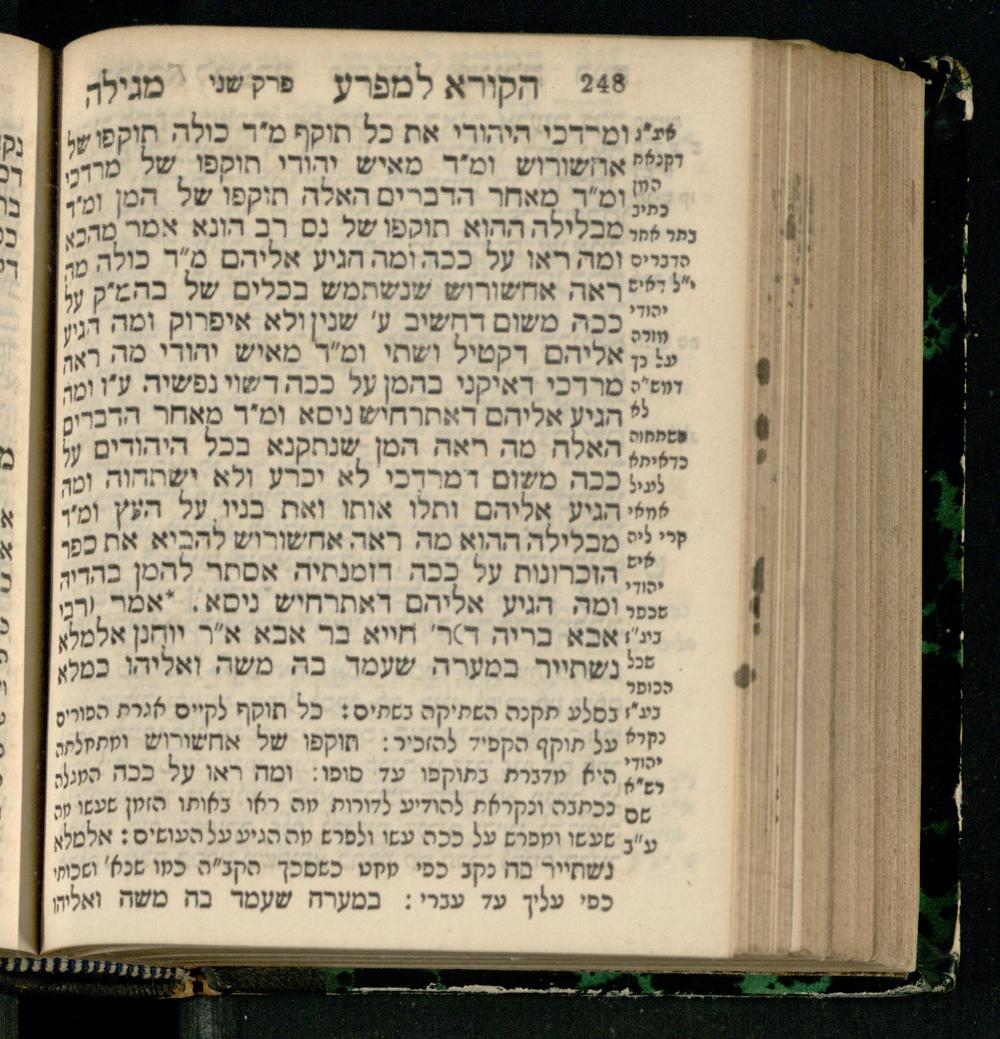 248 הקורא למפרע פרק שני מגילה
ומרדכי היהודי את כל תוקף מ״ד כולה תוקפו של
אחשורוש ומ״ד מאיש יהודי תוקפו של מרדכי
ומ״ד מאחר הדברים האלה תוקפו של המן ומ״ד
מבלילה ההוא תוקפו של נס רב הונא אמר מהכא
ומה ראו על ככה ומה הגיע אליהם מ״ד כולה מה
ראה אחשורוש שנשתמש בכלים של בהמ״ק על
ככה משום דחשיב ע׳ שנין ולא איפרוק ומה הגיע
אליהם דקטיל ושתי ומ״ד מאיש יהודי מה ראה
מרדכי דאיקני בהמן על ככה דשוי נפשיה ע״ז ומה
הגיע אליהם דאתרחיש ניסא ומ״ד מאחר הדברים
האלה מה ראה המן שנתקנא בכל היהודים על
ככה משום דמרדכי לא יכרע ולא ישתחוה ומה
הגיע אליהם ותלו אותו ואת בניו על העץ ומ״ד
מבלילה ההוא מה ראה אחשורוש להביא את ספר
הזכרונות על ככה דזמנתיה אסתר להמן בהדיה
ומה הגיע אליהם דאתרחיש ניסא. *אמר (רבי
אבא בריה ד)ר׳ חייא בר אבא א״ר יוחנן אלמלא
נשתייר במערה שעמד בה משה ואליהו כמלא
בסלע תקנה השתיקה בשתים: כל תוקף לקיים אגרת הפורים
על תוקף הקפיד להזכיר: תוקפו של אחשורוש ומתחלתה
היא מדברת בתוקפו עד סופו: ומה ראו על ככה המגלה
נכתבה ונקראת להודיע לדורות מה ראו באותו הזמן שעשו מה
שעשו ומפרש על ככה עשו ולפרש מה הגיע על העושים: אלמלא
נשתייר בה נקב כפי מחט כשסכך הקב״ה כמו שנא׳ ושכותי
כפי עליך עד עברי: במערה שעמד בה משה ואליהו
דקנאת
המן
כתיב
בתר אחר
הדברים
י״ל דאיש
יהודי
מורה
על כך
דמש״ה
לא
משתחוה
כדאיתא
לעיל
אמאי
קרי ליה
איש
יהודי
שכפר
בע״ז
שכל
הכופר
בע״ז
נקרא
יהודי
רש״א
שם
ע״ב